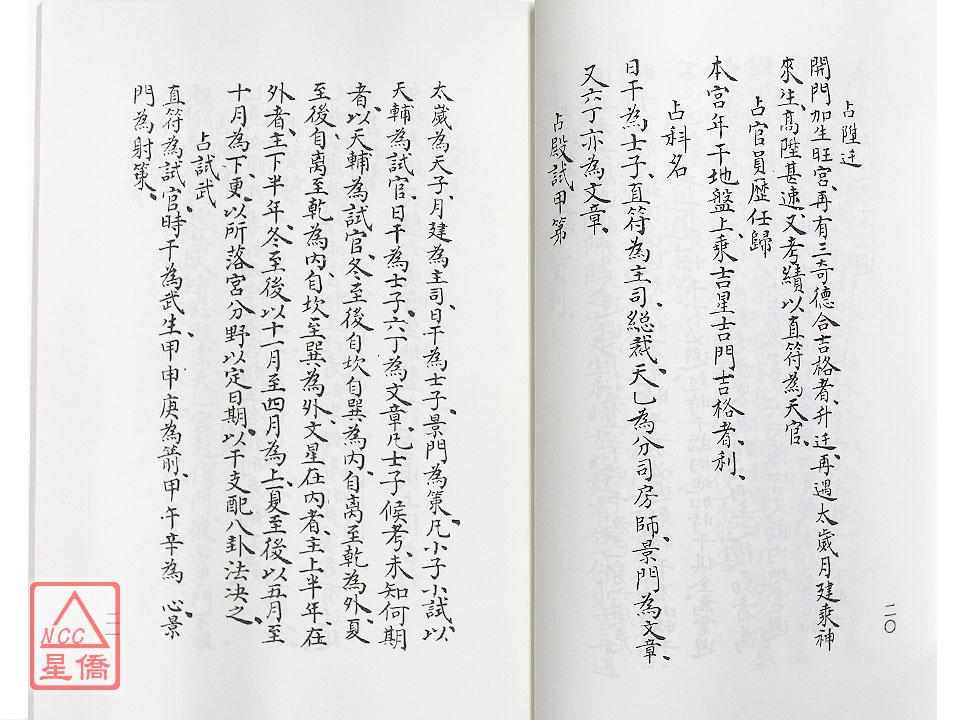 占陞迁
開門加生旺宮、再有三奇德合吉格者、升迁、再遇太歲月建乘神
來生、高陞甚速、又考績以直符為天官、
占官員歷任歸
本宮年干地盤上乘吉星吉門吉格者利、
占科名
日干為士子、直符為主司總裁、天乚為分司房師、景門為文章、
又六丁亦為文章、
占殿試甲第
二〇
太歲為天子、月建為主司、日干為士子、景門為策、凡小子小試、以
天輔為試官、日干為士子、六丁為文章、凡士子候考、未知何期
者、以天輔為試官、冬至後自坎自巽為內、自离至乾為外、夏
至後自离至乾為內、自坎至巽為外、文星在內者、主上半年、在
外者、主下半年、冬至後以十一月至四月為上、夏至後以五月至
十月為下、更以所落宮分野以定日期、以干支配八卦法決之、
占試武
直符為試官、時干為武生、甲申庚為箭、甲午辛為心、景
門為射策、
二一
NCC
星僑